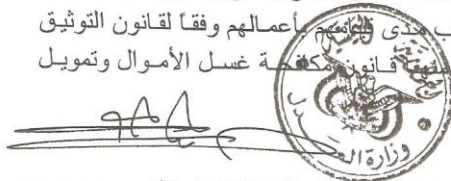 ب مدى قيامهم بأعمالهم وفقاً لقانون التوثيق
قانون مكافحة غسل الأموال وتمويل
وزارة العدل